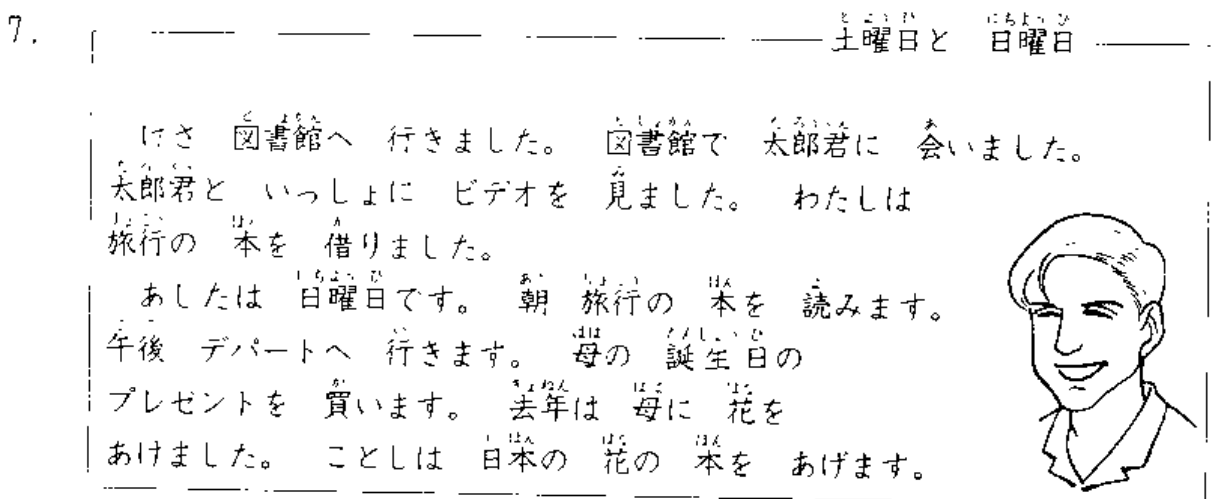 7.
土曜日と 日曜日
けさ 図書館へ 行きました。 図書館で 太郎君に 会いました。
太郎君と いっしょに ビデオを 見ました。 わたしは
旅行の 本を 借りました。
あしたは 日曜日です。 朝 旅行の 本を 読みます。
午後 デパートへ 行きます。 母の 誕生日の
プレゼントを 買います。 去年は 母に 花を
あげました。 ことしは 日本の 花の 本を あげます。